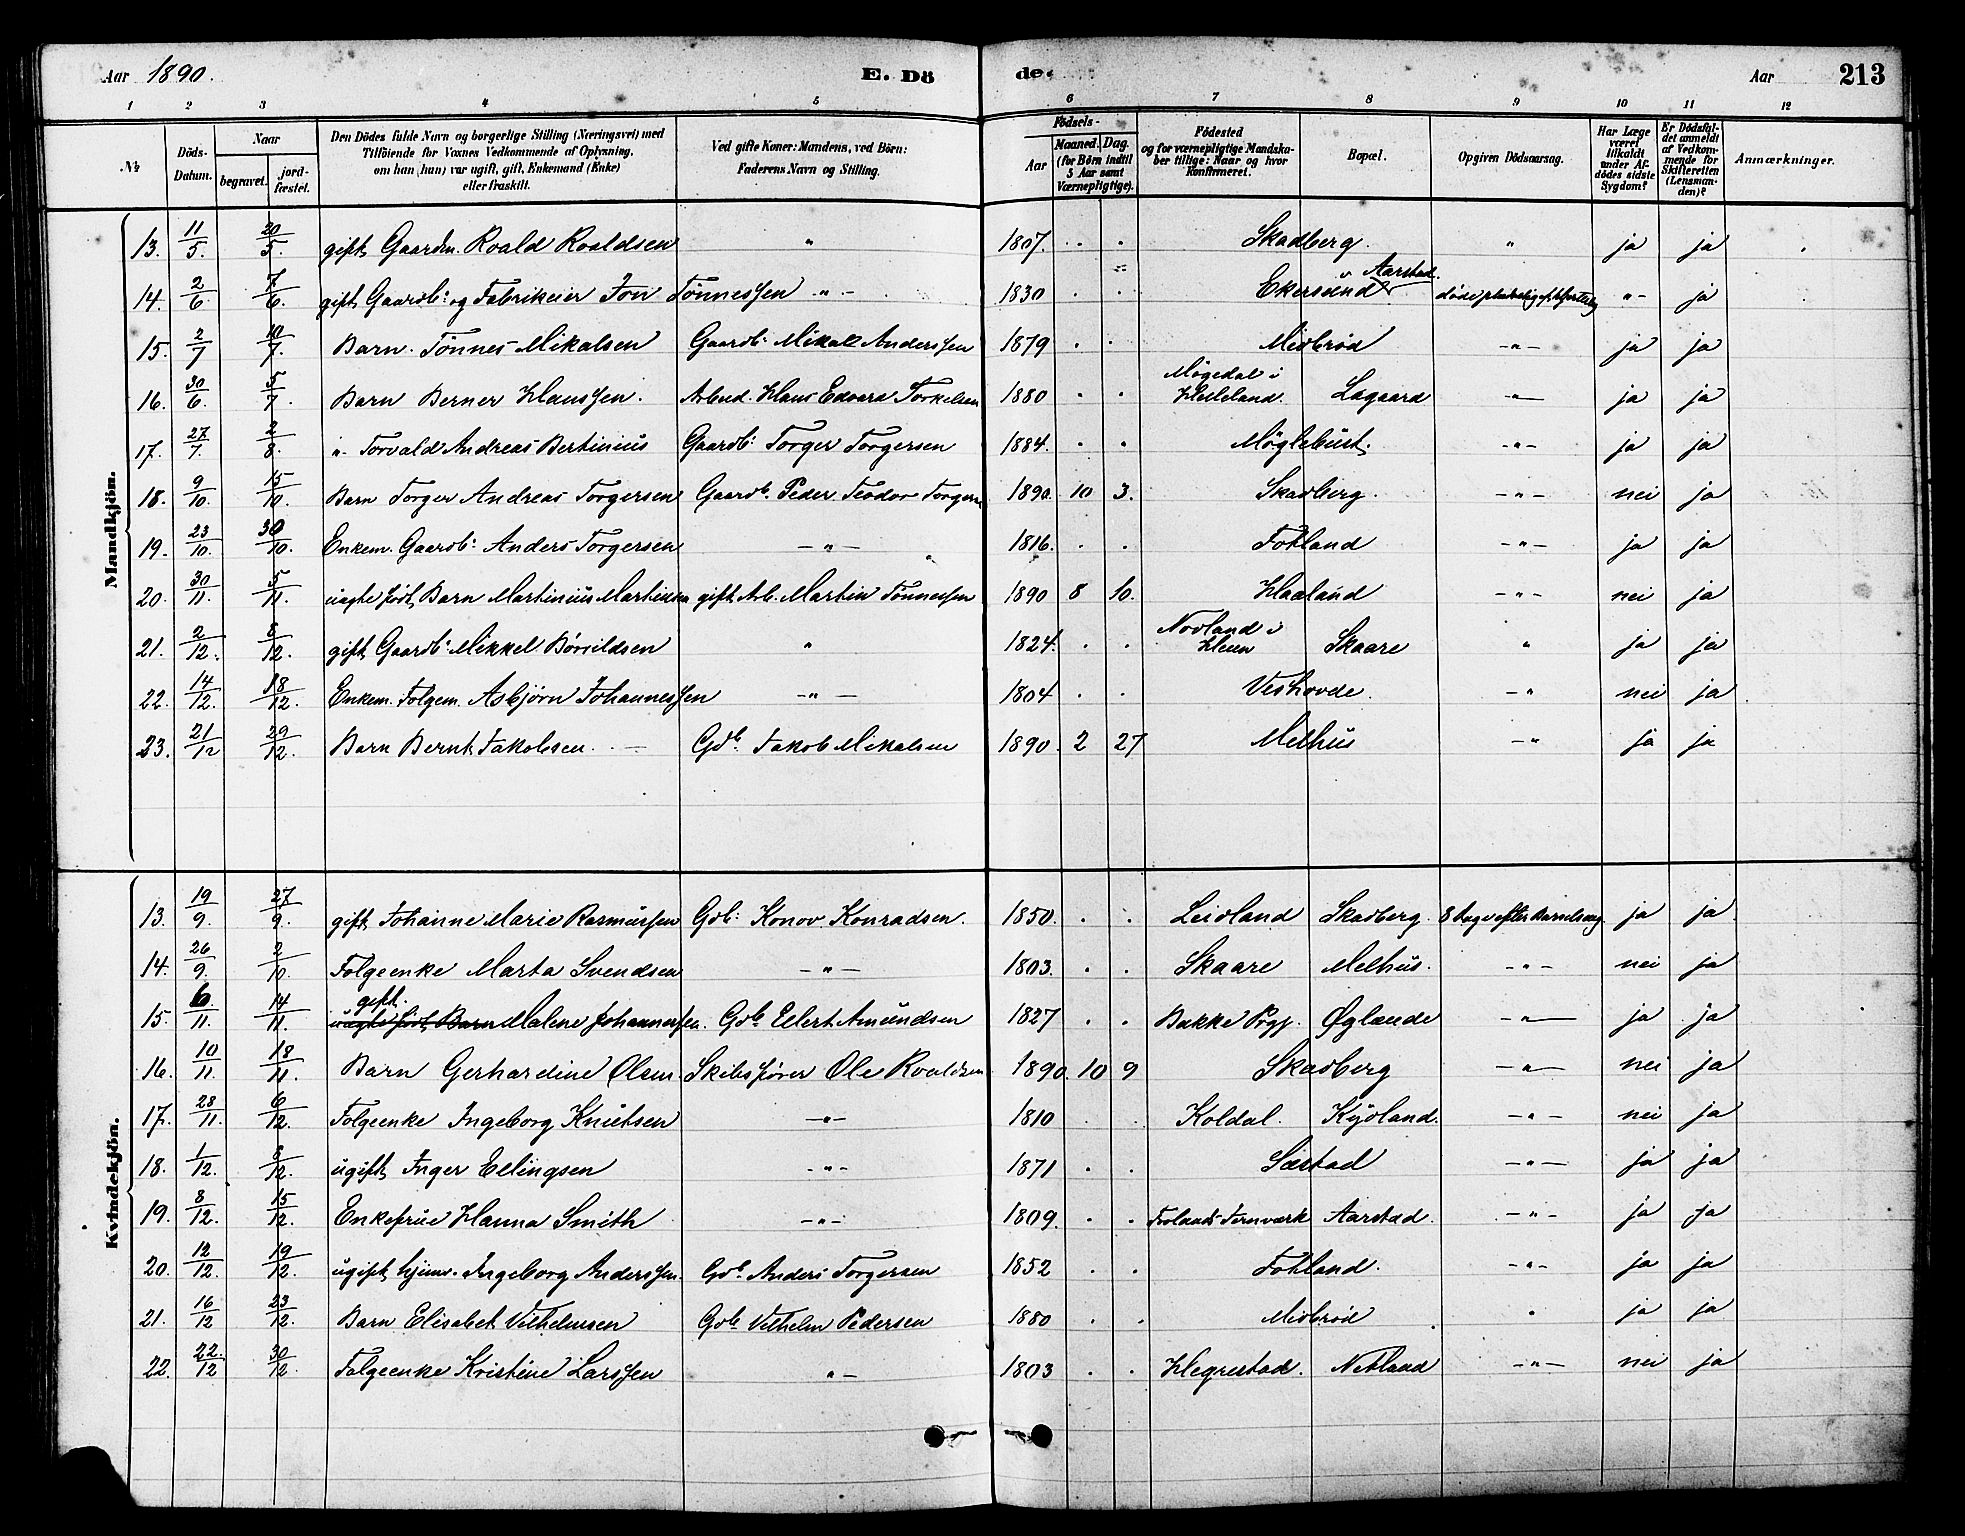 Aar 1890. E. Dö de. Aar 213
1 2 3 4 5 6 7 8 9 10 11 12
No. Döds-Datum. Naar begravet. jord-fæstet. Den Dödes fulde Navn og borgerlige Stilling (Næringsvei) med Tilföiende for Voxnes Vedkommende af Oplysning, om han (hun) var ugift, gift, Enkemand (Enke) eller fraskilt. Ved gifte Koner: Mandens, ved Börn: Faderens Navn og Stilling. Födsels- Aar Maaned. Dag. (for Börn indtil 5 Aar samt Værnepligtige). Födested og for værnepligtige Mandskaber tillige: Naar og hvor Konfirmeret. Bopæl. Opgiven Dödsaarsag. Har Læge været tilkaldt under Afdödes sidste Sygdom? Er Dödsfaldet anmeldt af Vedkommende for Skifteretten (Lensmanden)? Anmærkninger.
Mandkjöm.
13. 11/5. 20/5. gift Gaardm. Roald Roaldsen " 1807. . . Skadberg. " ja ja
14. 2/6. 7/6. gift Gaardb: og Fabrikeier Jon Tönnessen " - 1830 . . Ekersund v Aarstad. döde "- ja
15. 2/7 10/7. Barn. Tönnes Mikalsen Gaardb: Mikall Anderssen 1879 . . Midbröd -"- ja ja
16. 30/6. 5/7. Barn Berner Hanssen. Arbeid. Hans Edvard Torkelsen 1880 . . Mögedal i Helleland. Lagaard -"- ja ja
17. 27/7. 2/8. "- Torvald Andreas Bertinius Gaardb: Torger Torgersen 1884. . . Möglebüst. -"- ja ja
18. 9/10. 15/10. Barn Torger Andreas Torgersen Gaardb. Peder Teodor Torgers 1890. 10 3. Skadberg. -"- nei ja
19. 23/10. 30/10. Enkem. Gaardb: Anders Torgersen -"- 1816. . . Fotland -"- ja ja
20. 30/11. 5/11. uægte födt Barn Martinius Martinsen gift Arb. Martin Tönnessen 1890 8 10. Haaland -"- nei ja
21. 2/12. 8/12. gift Gaardb: Mikkel Börrildsen " 1824. . . Nodland i Heien Skaare " ja ja
22. 14/12. 18/12. Enkem. Folgem. Asbjörn Johannessen -"- 1804 . . Veshovde. -" nei ja
23. 21/12 29/12. Barn Bernt Jakobsen. - Gdb. Jakob Mikalsen 1890. 2 27 Melhus -" ja ja
Kvindekjön.
13. 19/9. 27/9. gift Johanne Marie Rasmussen Gdb: Konov Konradsen. 1850. . . Leidland Skadberg. 8 Dage efter Barselseng. ja ja
14. 26/9. 2/10. Folgeenke Marta Svendsen -"- 1803. . . Skaare Melhus. -"- nei ja
15. 6/11. 14/11. gift uægte födt Barn Malene Johannessen. Gdb. Eilert Amundsen 1827 . . Bakke Prgj. Öglænde -"- ja ja
16. 10/11. 18/11. Barn Gerhardine Olsen Skibsförer Ole Roaldsen 1890. 10 9 Skadberg -"- nei ja
17. 28/11. 6/12. Folgeenke Ingeborg Knutsen -"- 1810 . . Koldal. Kydland. -"- nei ja
18. 1/12. 8/12. ugift Inger Ellingsen -"- 1871 . . Sæstad -"- ja ja
19. 8/12. 15/12. Enkefrue Hanna Smith -"- 1809. . . Frolands Jernværk Aarstad. -"- ja ja
20. 12/12. 19/12. ugift hjem. Ingeborg Anderssen. Gdb. Anders Torgersen 1852 . . Fotland. -"- ja ja
21. 16/12 23/12. Barn Elisabet Vilhelmsen Gdb. Vilhelm Pedersen 1880 . . Midbröd " ja ja
22. 22./12 30/12. Folgeenke Kristine Larssen "- 1803 . . Hegrestad. Netland -"- nei ja